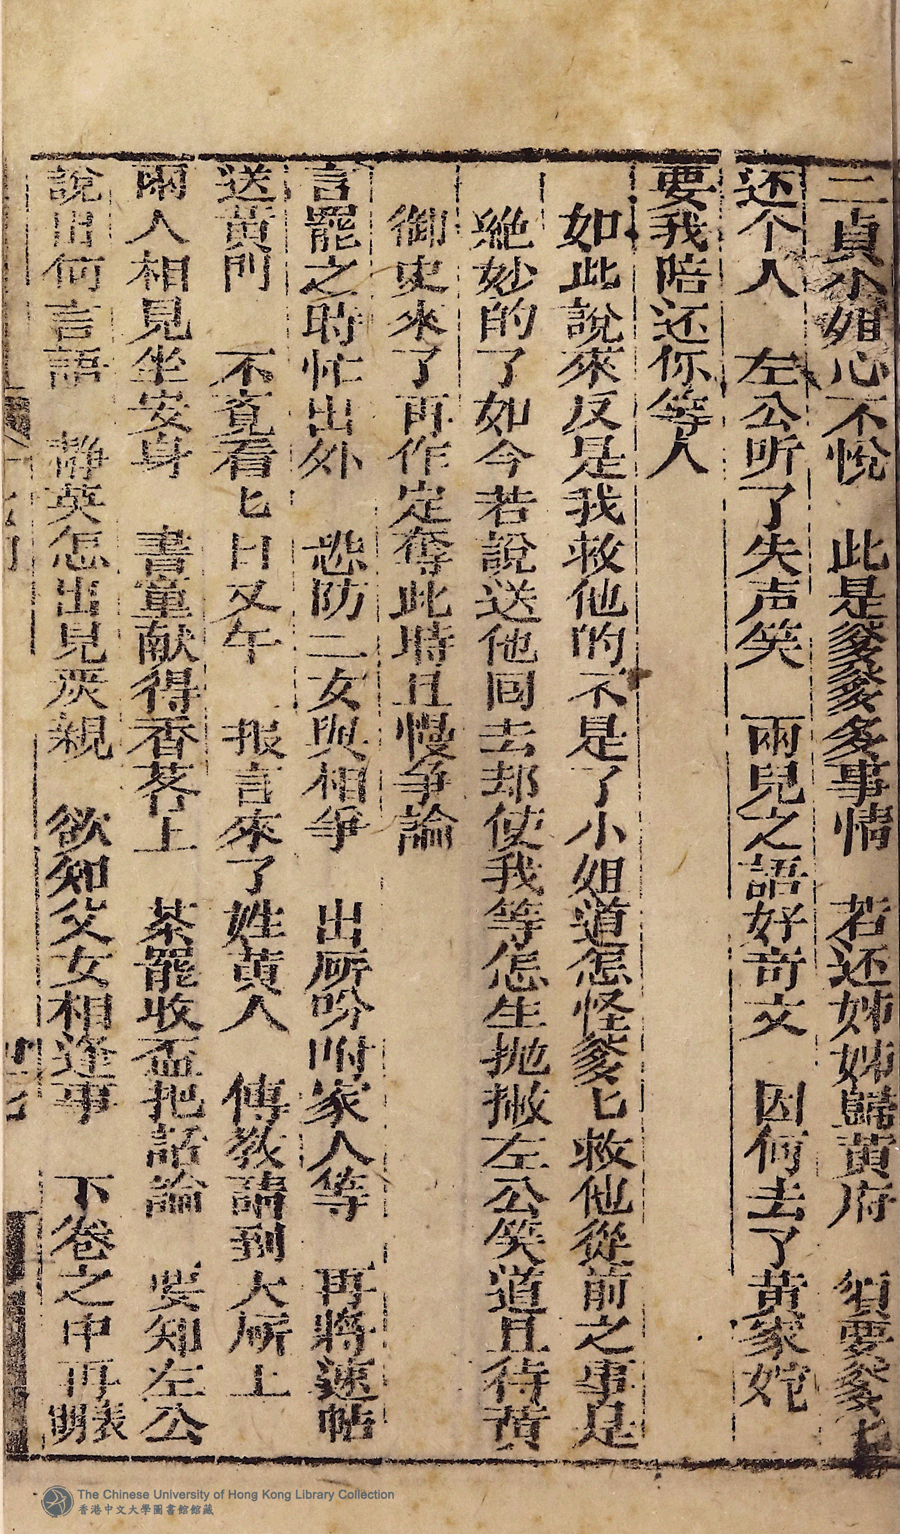 二貞小姐心不悅　此是爹爹多事情　若还姊姊歸黄府　須要爹匕
还个人　左公听了失声笑　兩兒之語好奇文　因何去了黄家姹
要我陪还你等人
如此說來反是我救他的不是了小姐道怎怪爹匕救他從前之事是
絶妙的了如今若說送他囘去却使我等怎生抛撇左公笑道且待黄
御史來了再作定奪此時且慢争論
言罷之時忙出外　恐防二女與相爭　出所吩咐家人等　再將速帖
送黄門　不覔看匕日又午　报言來了姓黄人　傳教請到大所上
兩人相見坐安身　書童献得香茗上　茶罷收盃把話論　要知左公
說出何言語　静英怎出見严親　欲知父女相逢事　下卷之中再表明
The Chinese University of Hong Kong Library Collection
香港中文大學圖書館館藏